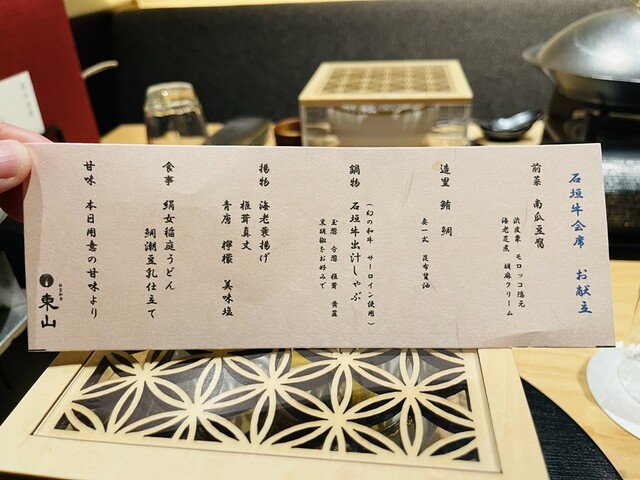 石垣牛会席 お献立
前菜 南瓜豆腐
渋皮栗 モロッコ隠元
海老芝煮 胡麻クリーム
造里 鮪 鯛
妻一式 昆布醤油
鍋物 石垣牛出汁しゃぶ
(幻の和牛 サーロイン使用)
玉葱 分葱 椎茸 黄韮
黒胡椒をお好みで
揚物 海老蓑揚げ
椎茸真丈
青唐 檸檬 美味塩
食事 絹女稲庭うどん
鯛潮豆乳仕立て
甘味 本日用意の甘味より
東山